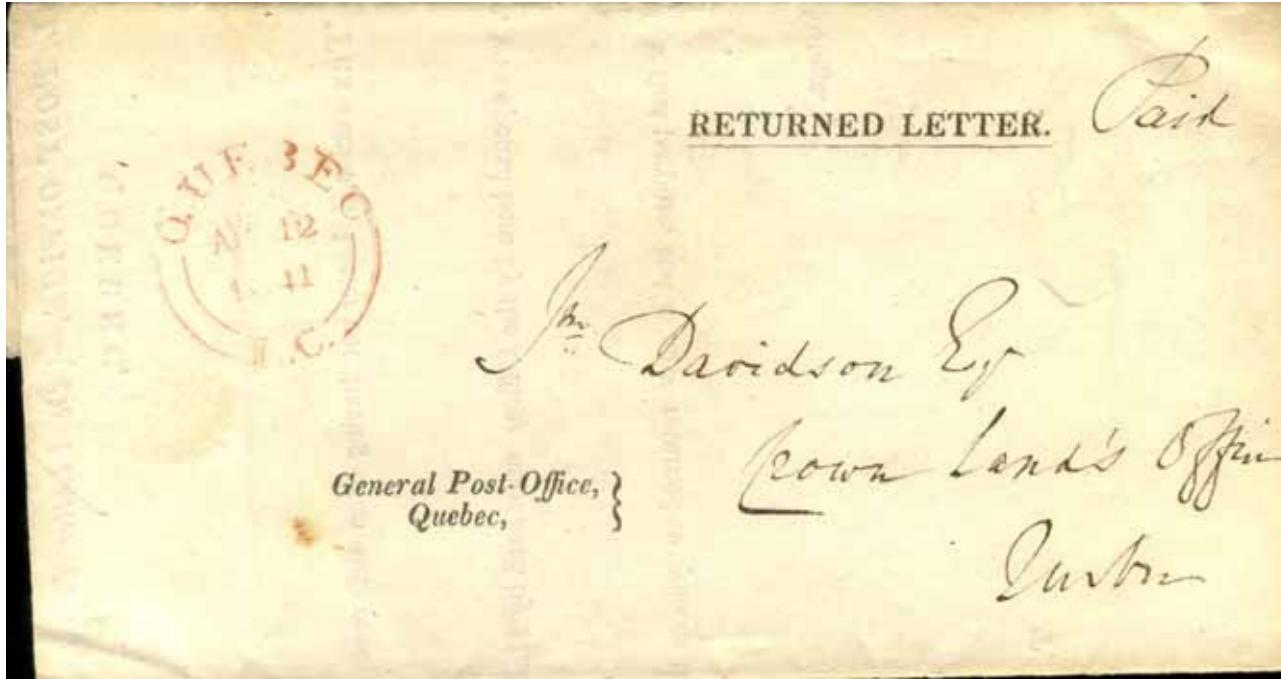 RETURNED LETTER. Paid
QUEBEC
12
L.C.
Jn. Davidson Esq
Crown Land's Office
General Post-Office, }
Quebec,